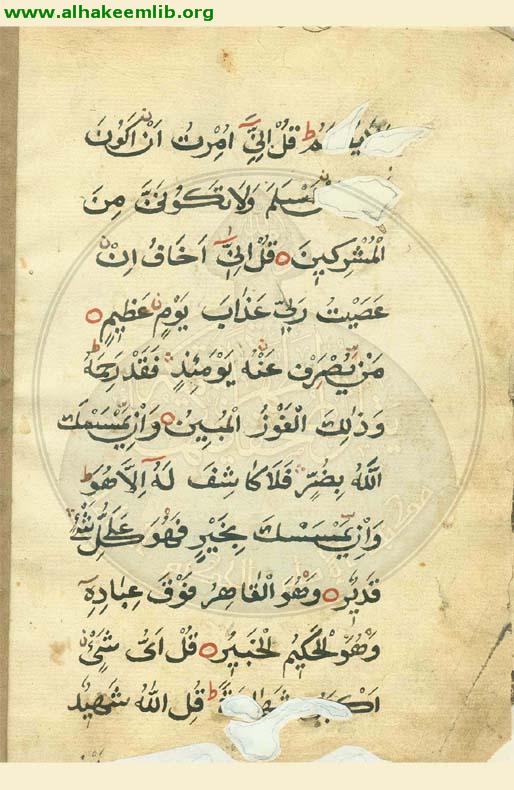 www.alhakeemlib.org
قُلْ اِنِّيٓ اُمِرْتُ اَنْ اَكُونَ
اَسْلَمَ وَلَا تَكُونَنَّ مِنَ
الْمُشْرِكِينَ قُلْ اِنِّيٓ اَخَافُ اِنْ
عَصَيْتُ رَبِّي عَذَابَ يَوْمٍ عَظِيمٍ
مَنْ يُصْرَفْ عَنْهُ يَوْمَئِذٍ فَقَدْ رَحِمَهُ ط
وَذٰلِكَ الْفَوْزُ الْمُبِينُ وَاِنْ يَمْسَسْكَ
اللّٰهُ بِضُرٍّ فَلَا كَاشِفَ لَهٗٓ اِلَّا هُوَ ط
وَاِنْ يَمْسَسْكَ بِخَيْرٍ فَهُوَ عَلٰى كُلِّ شَيْءٍ
قَدِيرٌ وَهُوَ الْقَاهِرُ فَوْقَ عِبَادِهٖ
وَهُوَ الْحَكِيمُ الْخَبِيرُ قُلْ اَيُّ شَيْءٍ
اَكْبَرُ شَهَادَةً ط قُلِ اللّٰهُ شَهِيدٌ